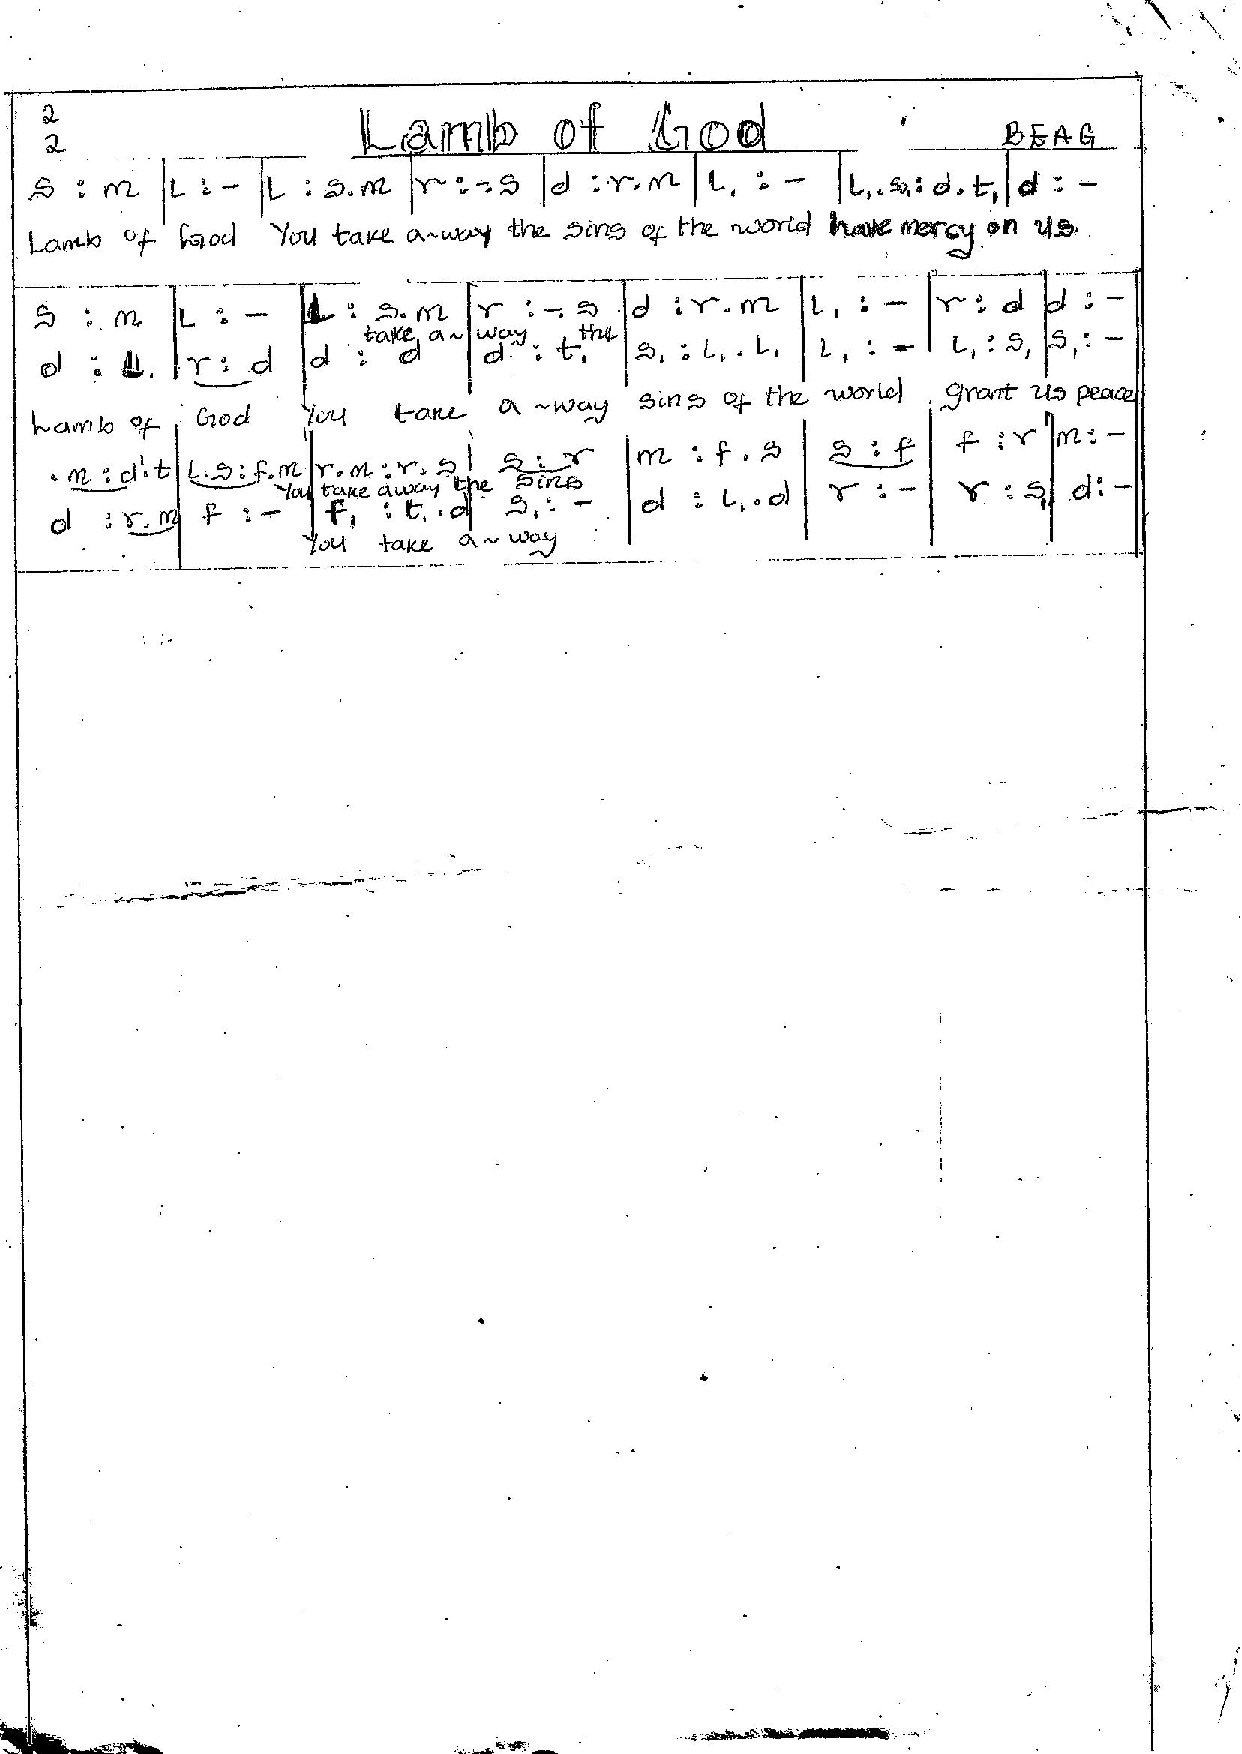 2
2
Lamb of God
BEAG
s : m | L : - | L : s.m | r : -.s | d : r.m | L, : - | L,.s,: d.t, | d : -
Lamb of God You take a-way the sins of the world have mercy on us
s : m | L : - | L : s.m | r : -.s | d : r.m | L, : - | r : d | d : -
take a- way the
d : L, | r : d | d : d | d : t, | s, : L,. L, | L, : - | L, : s, | s, : -
Lamb of God You take a-way sins of the world grant us peace
.m : d'.t | L.s : f.m | r.m : r.s | s : r | m : f.s | s : f | f : r | m : -
You take away the sins
d : r.m | f : - | f, : t,.d | s, : - | d : L,.d | r : - | r : s, | d : -
You take a-way